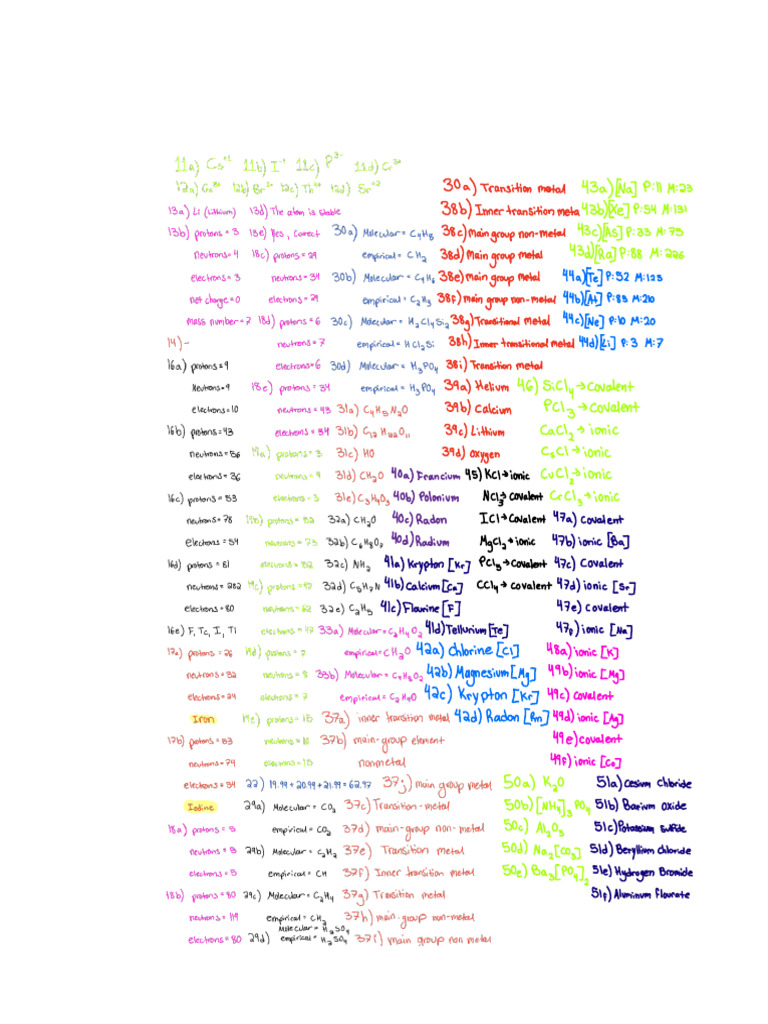 11a) Cs+1 11b) I-1 11c) P3- 11d) Cr3+
12a) Ga3+ 12b) Br 12c) Th 12d) Sr+2
13a) Li (Lithium)
13b) protons = 3
neutrons = 4
electrons = 3
net charge = 0
mass number = 7
14) -
16a) protons = 9
Neutrons = 9
electrons = 10
16b) protons = 43
neutrons = 56
electrons = 36
16c) protons = 53
neutrons = 78
electrons = 54
16d) protons = 81
neutrons = 202
electrons = 80
16e) F, Tc, I, Tl
protons = 26
neutrons = 32
electrons = 24
Iron
17b) protons = 53
neutrons = 74
electrons = 54
Iodine
18a) protons = 5
neutrons = 5
electrons = 5
18b) protons = 80
neutrons = 119
electrons = 80
13d) The atom is stable
13e) Yes, Correct
18c) protons = 29
neutrons = 34
electrons = 29
18d) protons = 6
neutrons = 7
electrons = 6
18e) protons = 34
neutrons = 43
electrons = 34
19a) protons = 3
neutrons = 4
electrons = 3
19b) protons = 52
neutrons = 73
electrons = 52
19c) protons = 47
neutrons = 62
electrons = 47
19d) protons = 7
neutrons = 8
electrons = 7
19e) protons = 15
neutrons = 16
electrons = 15
22) 19.99 + 20.99 + 21.99 = 62.97
29a) Molecular = CO2
empirical = CO2
29b) Molecular = C2H2
empirical = CH
29c) Molecular = C2H4
empirical = CH2
29d) Molecular = H2SO4
empirical = H2SO4
30a) Molecular = C4H8
empirical = CH2
30b) Molecular = C4H6
empirical = C2H3
30c) Molecular = H2Cl4Si2
empirical = HCl2Si
30d) Molecular = H3PO4
empirical = H3PO4
31a) C4H5N2O
31b) C12H22O11
31c) HO
31d) CH2O
31e) C3H4O3
32a) CH2O
32b) C6H8O7
32c) NH2
32d) C5H7N
32e) C2H5
33a) Molecular = C2H4O2
empirical = CH2O
33b) Molecular = C4H8O2
empirical = C2H4O
37a) inner transition metal
37b) main-group element
nonmetal
37j) main group metal
37c) Transition-metal
37d) main-group non-metal
37e) Transition metal
37f) Inner transition metal
37g) Transition metal
37h) main-group non-metal
37i) main group non metal
30a) Transition metal
38b) Inner transition metal
38c) main group non-metal
38d) Main group metal
38e) main group metal
38f) main group non-metal
38g) Transitional metal
38h) Inner transitional metal
38i) Transition metal
39a) Helium
39b) Calcium
39c) Lithium
39d) oxygen
40a) Francium
40b) Polonium
40c) Radon
40d) Radium
41a) Krypton [Kr]
41b) Calcium [Ca]
41c) Flourine [F]
41d) Tellurium [Te]
42a) Chlorine [Cl]
42b) Magnesium [Mg]
42c) Krypton [Kr]
42d) Radon [Rn]
43a) [Na] P: 11 M: 23
43b) [Xe] P: 54 M: 131
43c) [As] P: 33 M: 75
43d) [Ra] P: 88 M: 226
44a) [Te] P: 52 M: 123
44b) [At] P: 85 M: 210
44c) [Ne] P: 10 M: 20
44d) [Li] P: 3 M: 7
45) KCl → ionic
NCl3 → covalent
ICl → Covalent
MgCl2 → ionic
PCl5 → Covalent
CCl4 → covalent
46) SiCl4 → Covalent
PCl3 → Covalent
CaCl2 → ionic
CsCl → ionic
CuCl2 → ionic
CrCl3 → ionic
47a) Covalent
47b) ionic [Ba]
47c) Covalent
47d) ionic [Sr]
47e) Covalent
47f) ionic [Na]
48a) ionic [K]
49b) ionic [Mg]
49c) covalent
49d) ionic [Ag]
49e) covalent
49f) ionic [Co]
50a) K2O
50b) [NH4]3 PO4
50c) Al2O3
50d) Na2 [CO3]
50e) Ba3 [PO4]2
51a) Cesium Chloride
51b) Barium Oxide
51c) Potassium Sulfide
51d) Beryllium Chloride
51e) Hydrogen Bromide
51f) Aluminum flourate